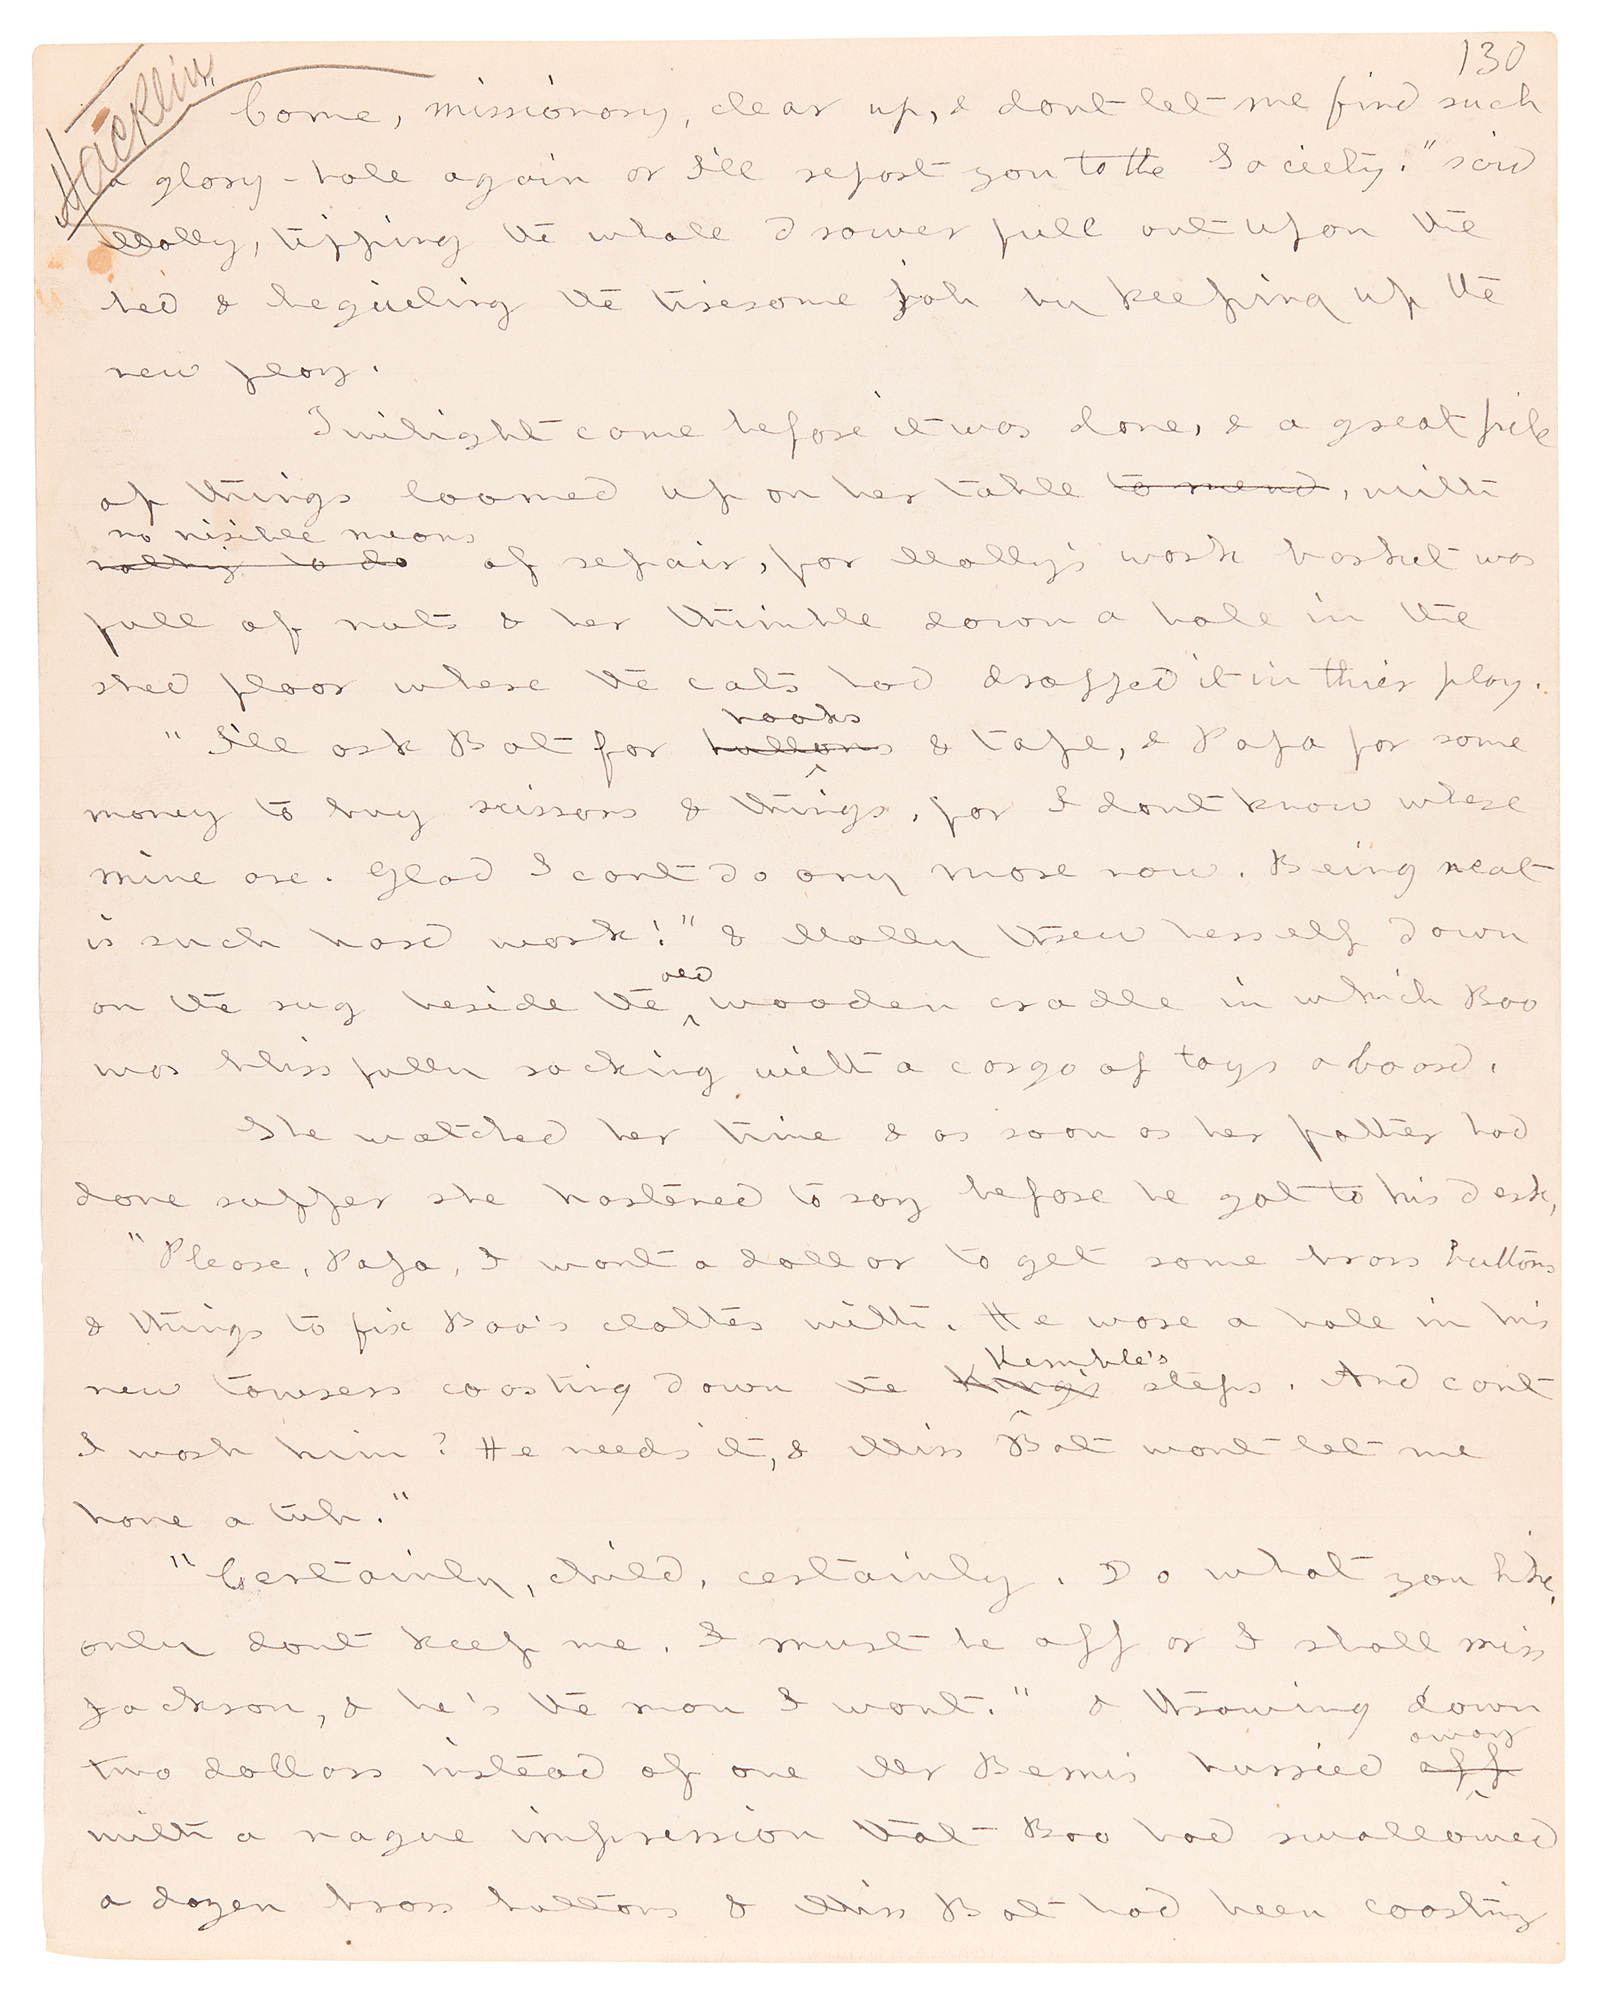 130
Hacklin
Come, missionary, clear up, & dont let me find such
a glory-hole again or I'll report you to the Society." said
Molly, tipping the whole drower full out upon the
bed & begüeling the tiresome job by keeping up the
new play.
Twilight came before it was done, & a great pile
of things loomed up on her table to mend, with
no visible means
nothing to do of repair, for Molly's work basket was
full of nuts & her thimble down a hole in the
shed floor where the cats had dropped it in their play.
hooks
"I'll ask Bat for buttons & tape, & Papa for some
money to buy scissors & things, for I dont know where
mine are. Glad I cant do any more now. Being neat
is such hard work!" & Molly threw herself down
old
on the rug beside the wooden cradle in which Boo
was blissfully rocking with a cargo of toys aboard.
She watched her time & as soon as her father had
done supper she hastened to say before he got to his desk,
"Please, Papa, I want a dollar to get some brass buttons
& things to fix Boo's clothes with. He wore a hole in his
Kemble's
new towsers coasting down the King's steps. And cant
I wash him? He needs it, & Miss Bat wont let me
have a tub."
"Certainly, child, certainly. Do what you like,
only dont keep me. I must be off or I shall miss
Jackson, & he's the man I want." & throwing down
away
two dollars instead of one Mr Bemis hurried off
with a vague impression that Boo had swallowed
a dozen brass buttons & Miss Bat had been coasting